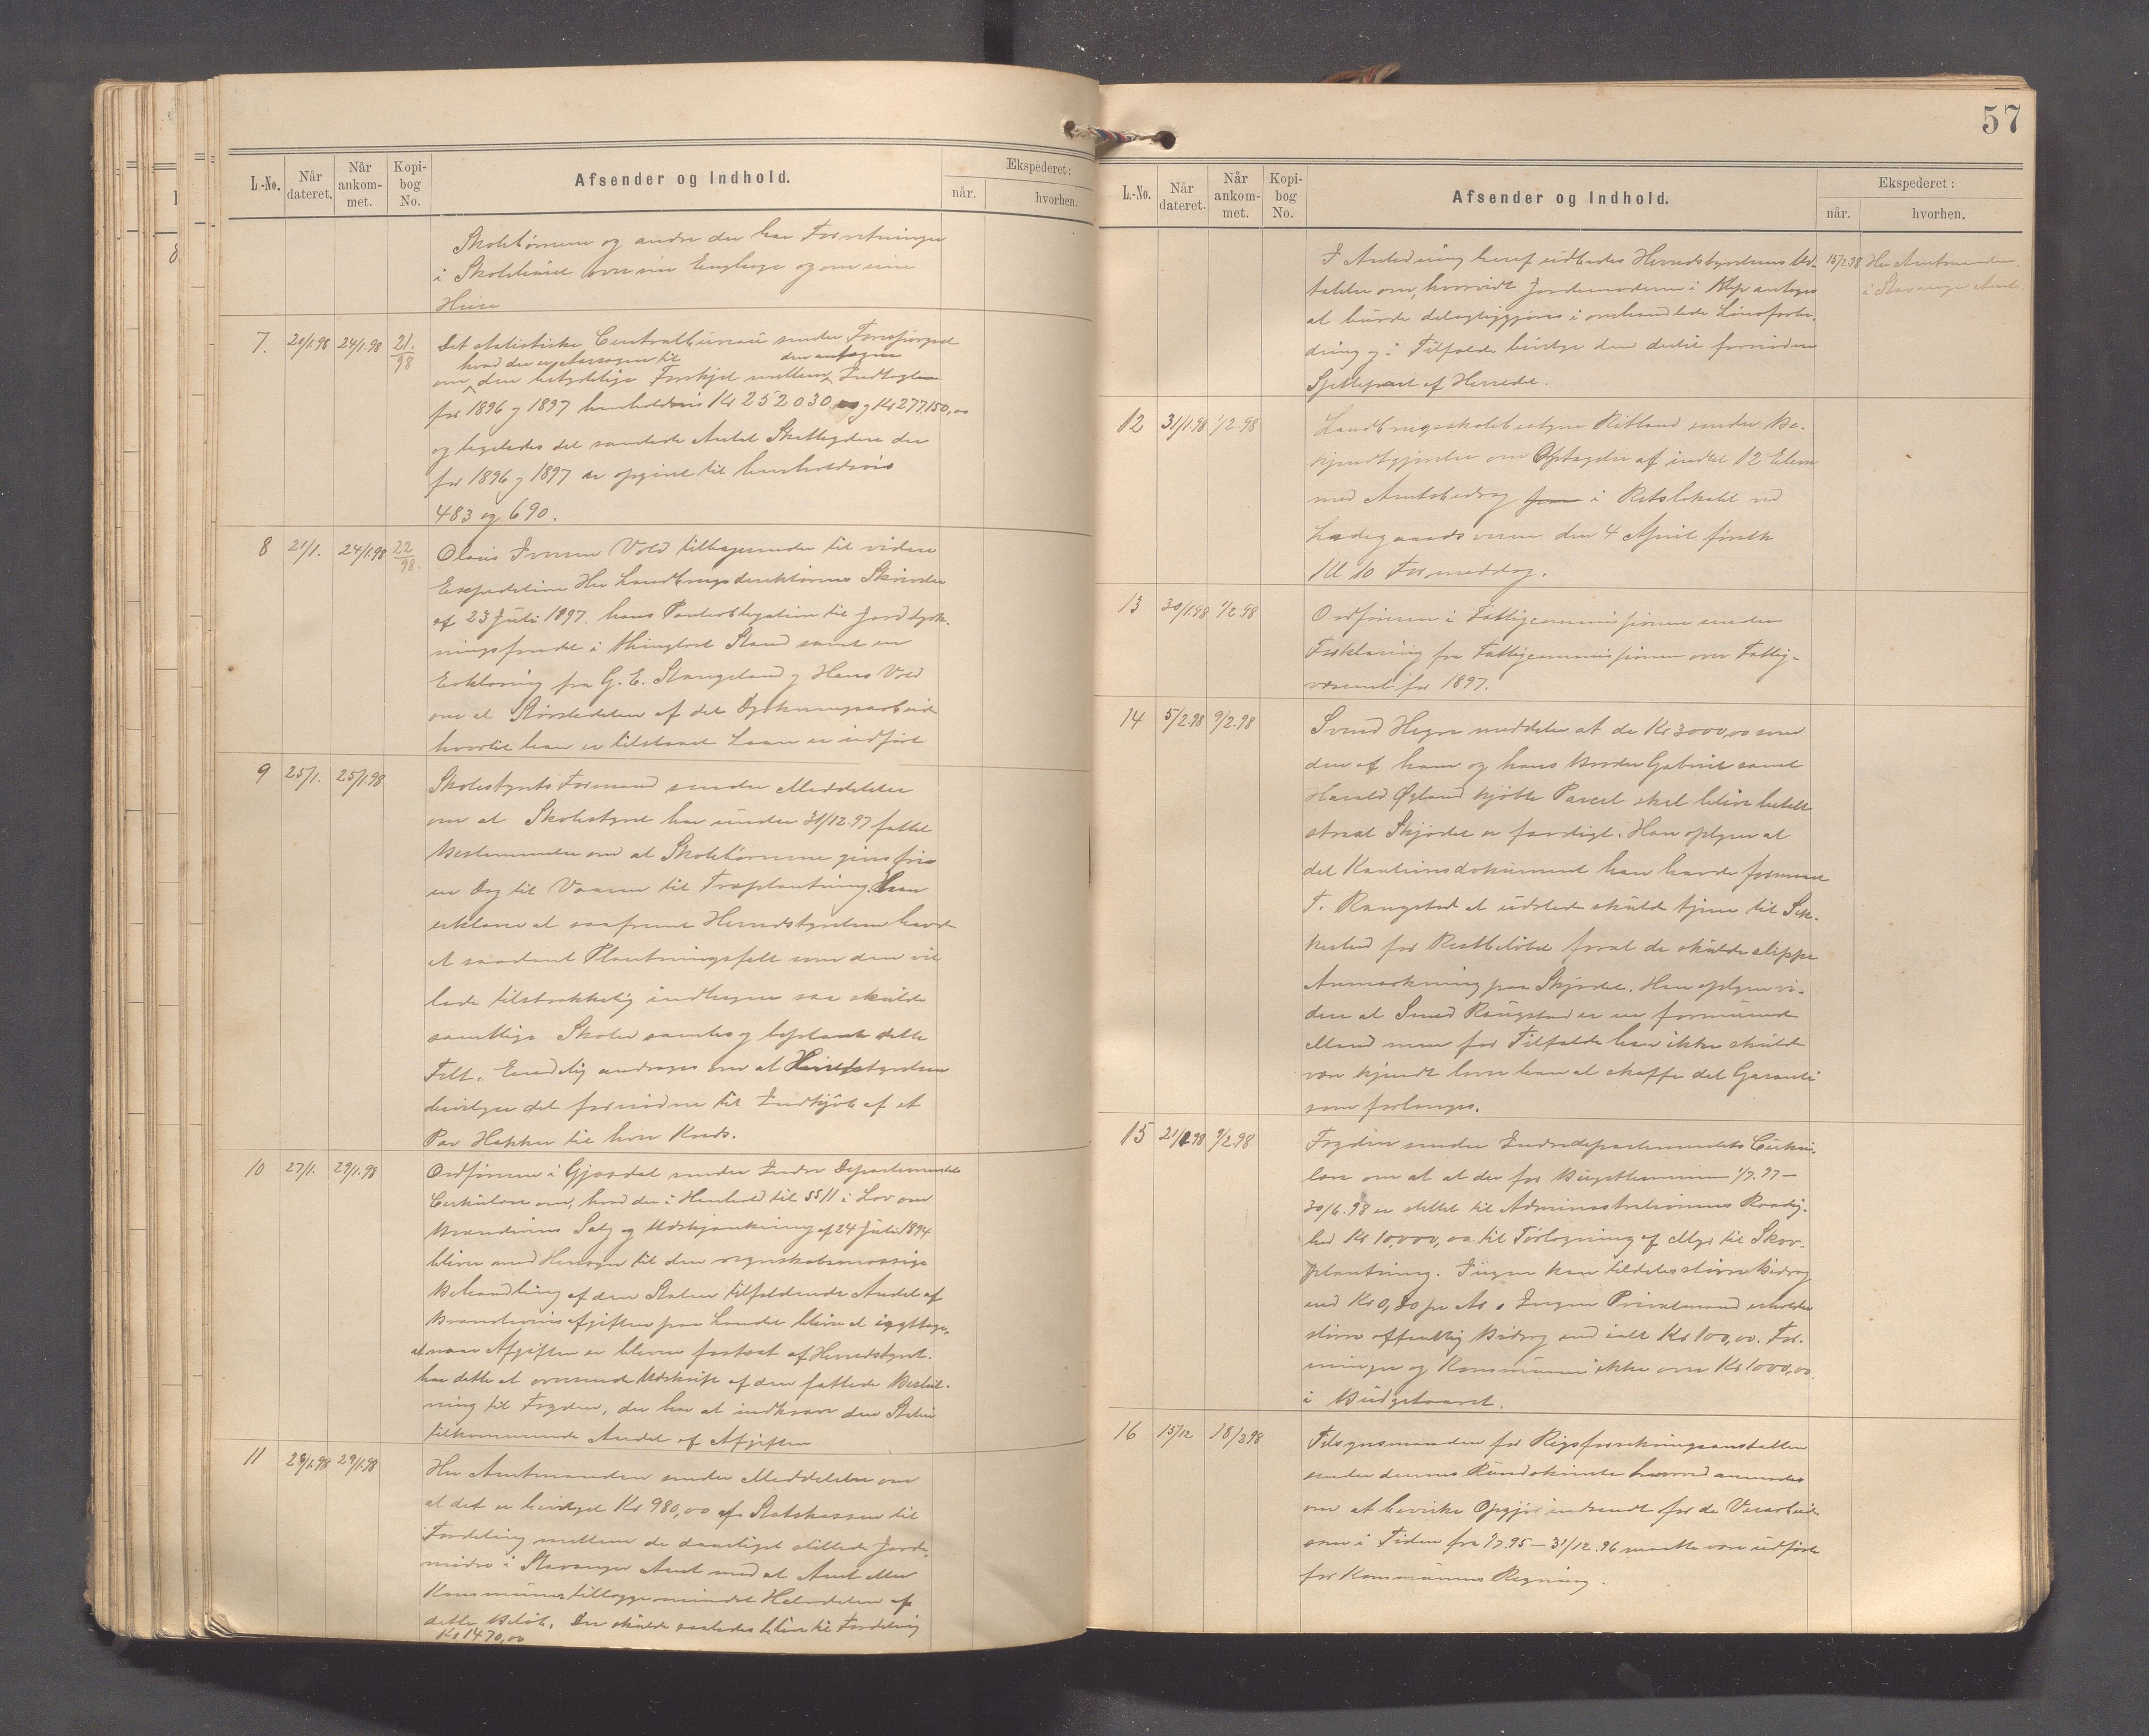 L.-No. Når dateret. Når ankom-met. Kopi-bog No. Afsender og Indhold. Ekspederet: når. hvorhen.
Skolebørnene og andre der har Forretninger
i Skolehuset over sin Eng og over sine
Huse
7. 20/1.98 24/1.98 21./98 Det statistiske Centralbureau sender Forespørgsel
hvad der er Aarsagen til den antagne
om den betydelige Forskjel mellem Indtægt
for 1896 og 1897 henholdsvis Kr 252030,00 og Kr 277150,00
og ligeledes det samlede Antal Skatteydere der
for 1896 og 1897 er opgivet til henholdsvis
483 og 690.
8 21/1. 24/1.98 22/98. Olaus Iversen Vold tilbagesender til videre
Expedition Hr Landbrugsdirektørens Skrivelse
af 23 Juli 1897. hans Panteobligation til Jorddyrk-
ningsfondet i thinglæst Stand samt en
Erklæring fra G. E. Stangeland og Hans Vold
om at Størstedelen af det Dyrkningsarbeide
hvortil han er tilstaaet Laan er udført
9 25/1. 25/1.98 Skolestyrets Formand sender Meddelelse
om at Skolestyret har under 31/12 97 fattet
Bestemmelse om at Skolebørnene gives fri
en Dag til Vaaren til Træplantning. Han
erklærer at saafremt Herredstyrelsen havde
et saadant Plantningsfelt som den vil
lade tilstrækkelig indhegne saa skulde
samtlige Skoler samles og beplante dette
Felt. Endelig andrages om at Herredstyrelsen
bevilger det fornødne til Indkjøb af et
Par Hakker til hver Kreds.
10 27/1. 29/1.98 Ordføreren i Gjæsdal sender Indre Departementets
Cirkulære om, hvad der i Henhold til §§ 11 i Lov om
Brændevins Salg og Udskjænkning af 24 Juli 1894
bliver med Hensyn til den regnskabsmæssige
Behandling af den Staten tilfaldende Andel af
Brændevinsafgiften paa Landet blive at iagttage,
at naar Afgiften er bleven fastsat af Herredstyret.
har dette at oversende Udskrift af den fattede Beslut-
ning til Fogden, der har at indkræve den Staten
tilkommende Andel af Afgiften
11 28/1.98 29/1.98 Hr Amtmanden sender Meddelelse om
at det er bevilget Kr 980,00 af Statskassen til
Fordeling mellem de daarligst stillede Jorde-
mødre i Stavanger Amt med at Amt eller
Kommuner tillægger mindst Halvdelen af
dette Beløb. Der skulde saaledes blive til Fordeling
Kr 1470,00
57
L.-No. Når dateret. Når ankom-met. Kopi-bog No. Afsender og Indhold. Ekspederet: når. hvorhen.
I Anledning heraf udbedes Herredstyrelsens Ud- 15/2.98 Hr Amtmanden
talelse om, hvorvidt Jordemoderen i Klep antages i Stavanger Amt.
at burde delagtiggjøres i omhandlede Lønsforbe-
dring og i Tilfælde bevilge den dertil fornødne
Sjettepart af Herredet.
12 31/1.98 1/2.98 Landbrugsskolebestyrer Retland sender Be-
kjendtgjørelse om Optagelse af indtil 12 Elever
med Amtsbidrag i Retslokalet ved
Ladegaardsveien den 4 April førstk
Kl 10 Formiddag.
13 30/1.98 1/2.98 Ordføreren i Fattigcommissionen sender
Forklaring fra Fattigcommissionen over Fattig-
væsenet for 1897.
14 5/2.98 9/2.98 Svend Hegre meddeler at de Kr 3000,00 som
den af ham og hans Broder Gabriel samt
Harald Øgland kjøbte Parcel skal blive betalt
straks Skjødet er færdigt. Han oplyser at
det Kautionsdokument han havde formaaet
T. Raugstad at udstede skulde tjene til Sik-
kerhed for Restbeløbet forat de skulde slippe
Anmærkning paa Skjødet. Han oplyser vi-
dere at Svend Raugstad er en formuende
Mand men for Tilfælde han ikke skulde
være kjendt lover han at skaffe det Garanti
som forlanges.
15 21/1 98 9/2.98 Fogden sender Indredepartementets Cirku-
lære om at at der for Budgetterminen 1/7.97 –
30/6.98 er stillet til Administrationens Raadig-
hed Kr 10,000,00 til Tørlægning af Myr til Skov-
plantning. Ingen kan tildeles større Bidrag
end Kr 0,80 pr Ar. Ingen Privatmand erholder
større offentlig Bidrag end ialt Kr 100,00. For-
eninger og Kommuner ikke over Kr 1000,00
i Budgetaaret.
16 15/12 18/2 98 Tilsynsmanden for Rigsforsikringsanstalten
sender dennes Rundskrivelse hvorved anmodes
om at bevirke Opgjør indsendt for de Veiarbeide
som i Tiden fra 1/7.95 – 31/12.96 maatte være udført
for Kommunens Regning.